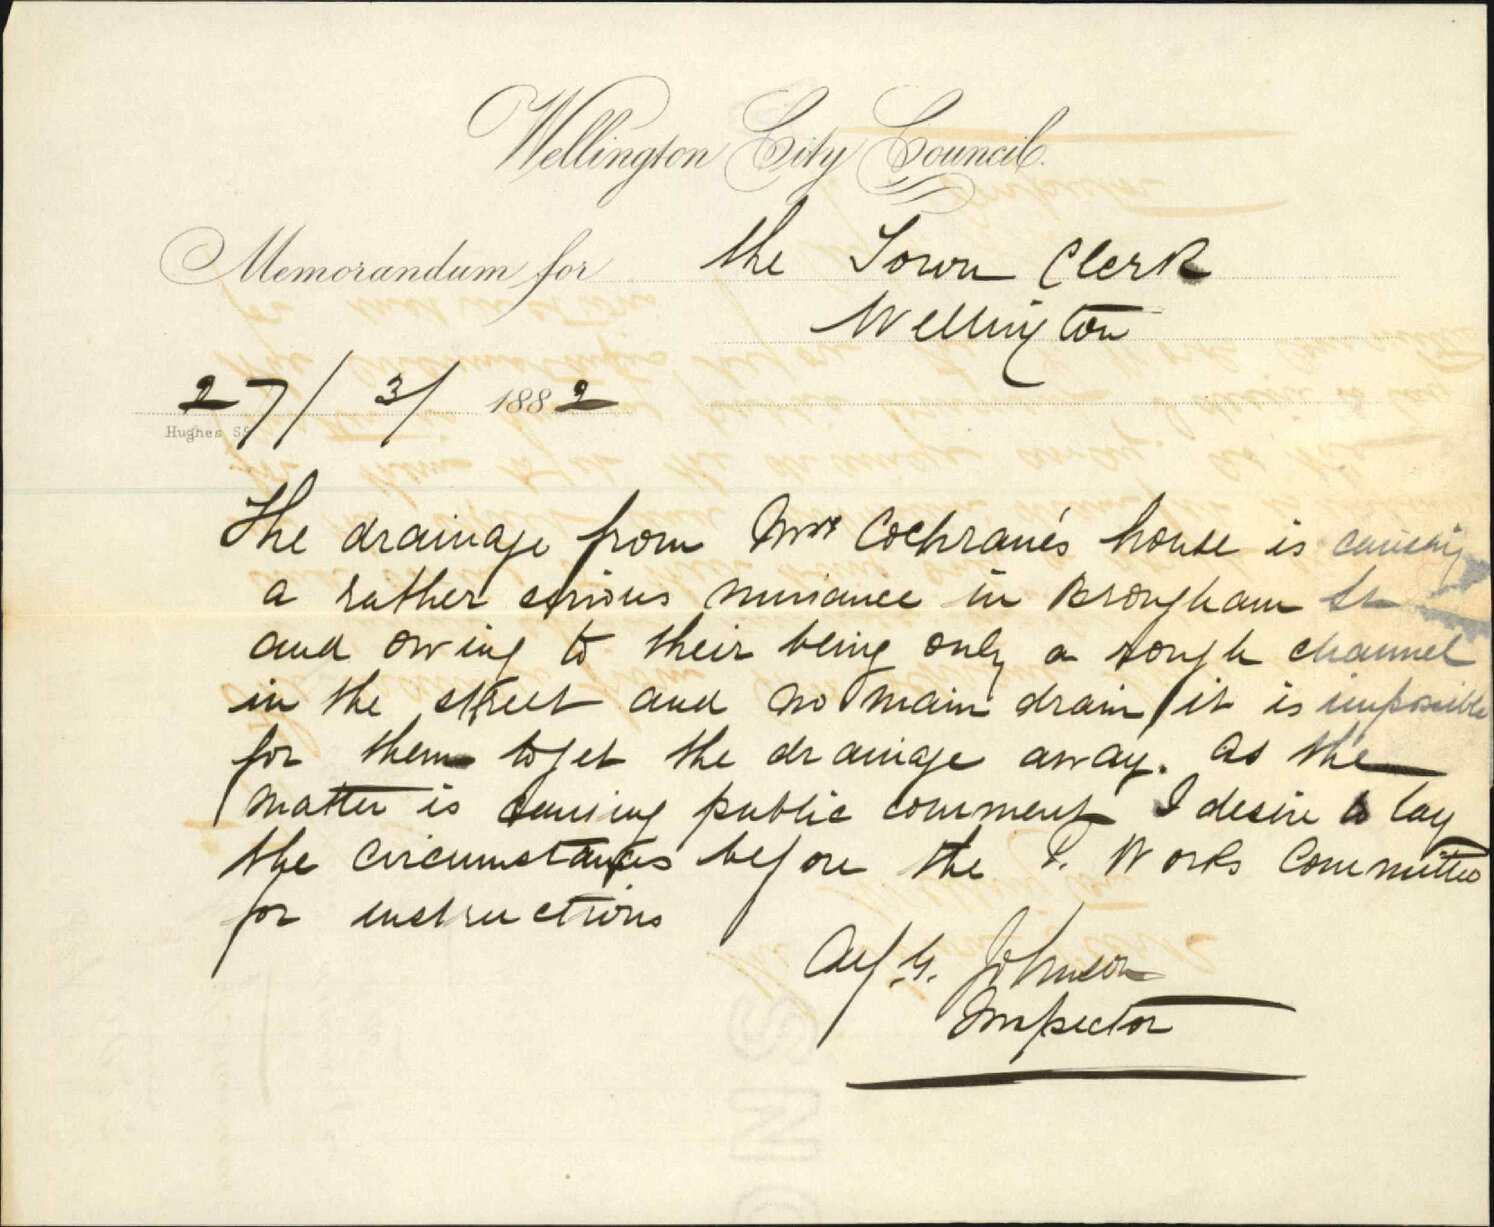 Wellington City Council.
Memorandum for the Town Clerk
Wellington
27/3/1882
Hughes
The drainage from Mrs Cochrane's house is causing
a rather serious nuisance in Brougham St
and owing to their being only a rough channel
in the street and no main drain it is impossible
for them to get the drainage away. As the
matter is causing public comment I desire to lay
the circumstances before the P. Works Committee
for instructions
Alf. G. Johnson
Inspector